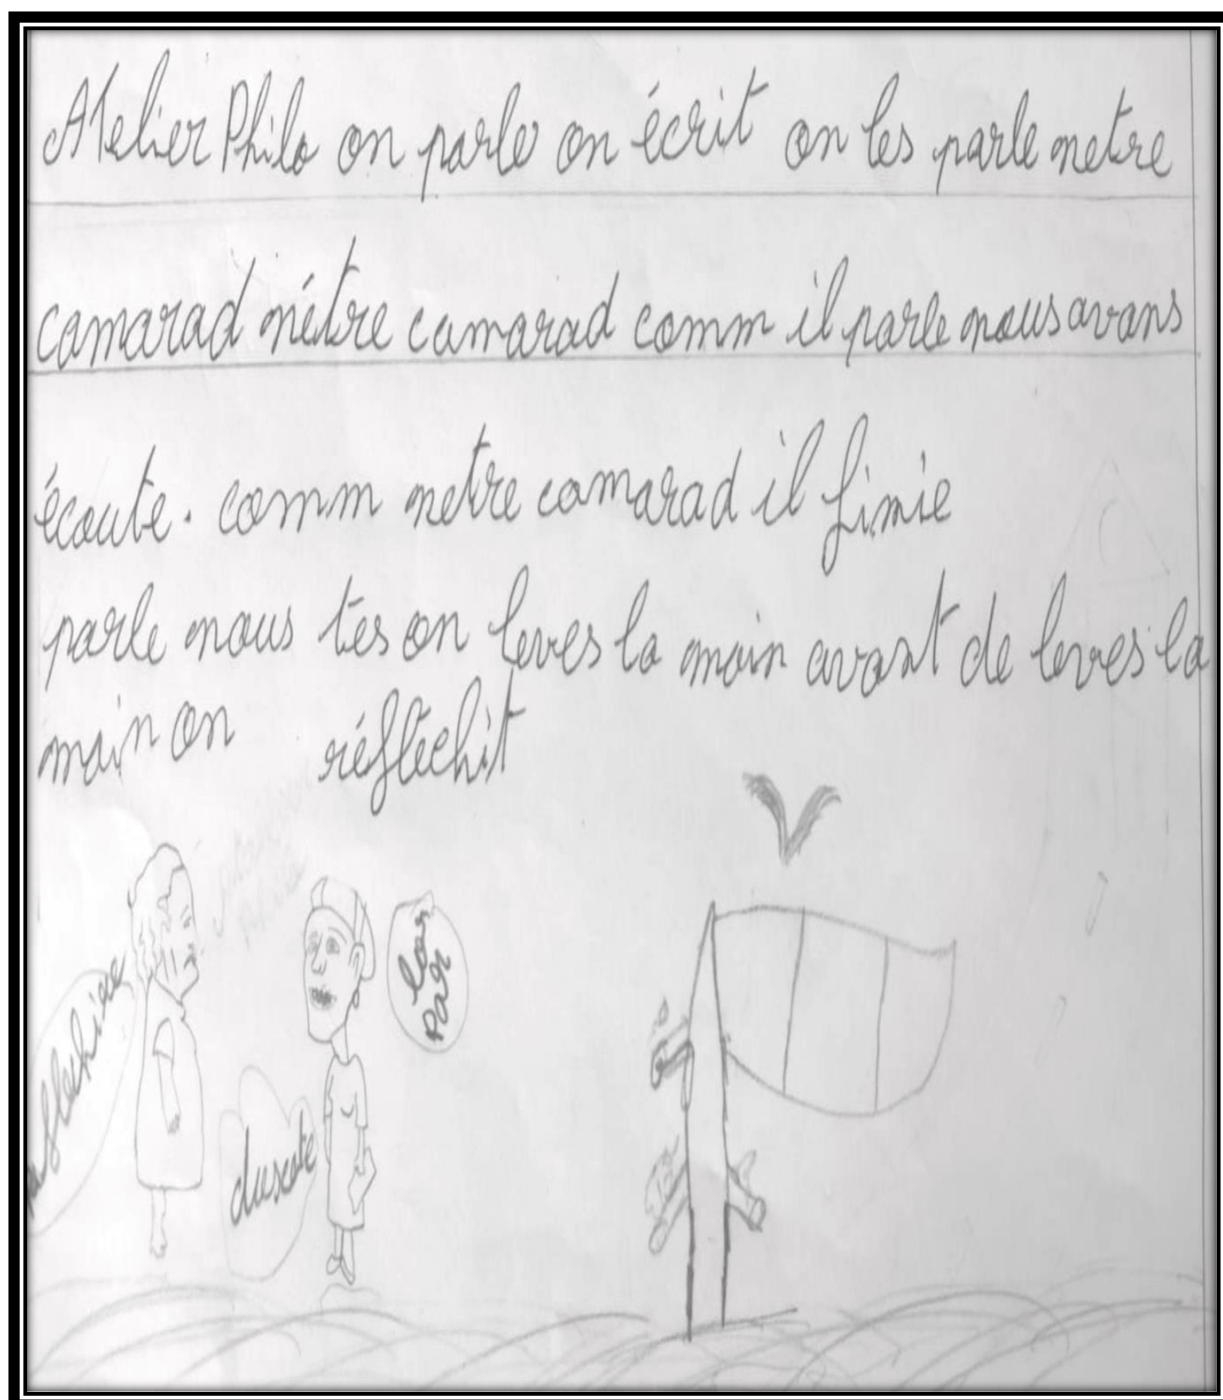 Atelier Philo on parle on écrit on les parle netre
camarad nétre camarad comm il parle nous avans
écoute. comm netre camarad il finie
parle nous tes on leves la main avant de leves la
main on réflechit